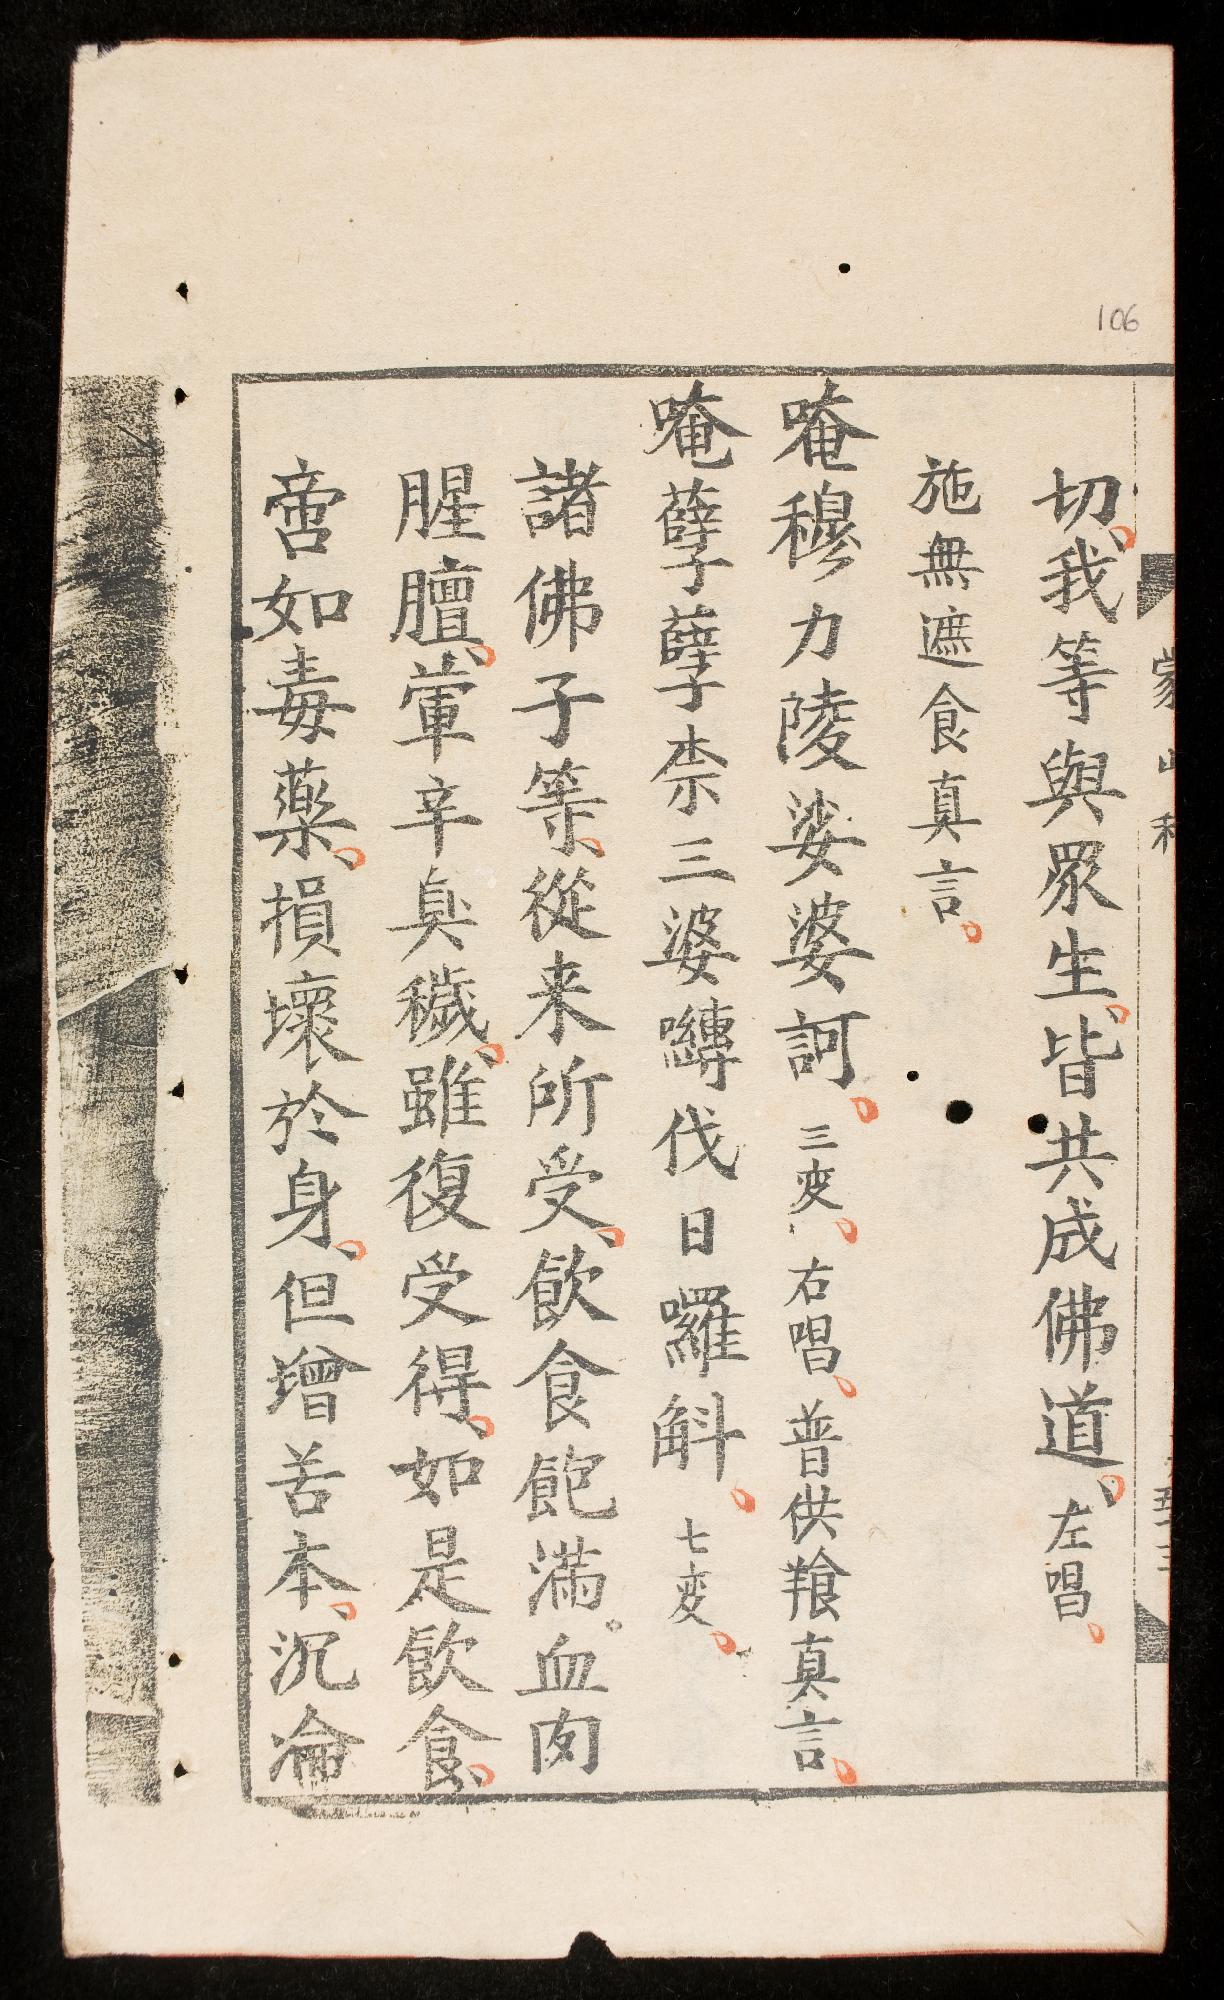 106
切我等與眾生皆共成佛道左唱
施無遮食真言
唵穆力陵娑婆訶三变右唱普供飡真言
唵孽孽柰三婆囀伐日囉斛七变
諸佛子等從来所受飲食飽滿血肉
腥膻葷辛臭穢雖復受得如是飲食
啻如毒藥損壞於身但增苦本沉淪